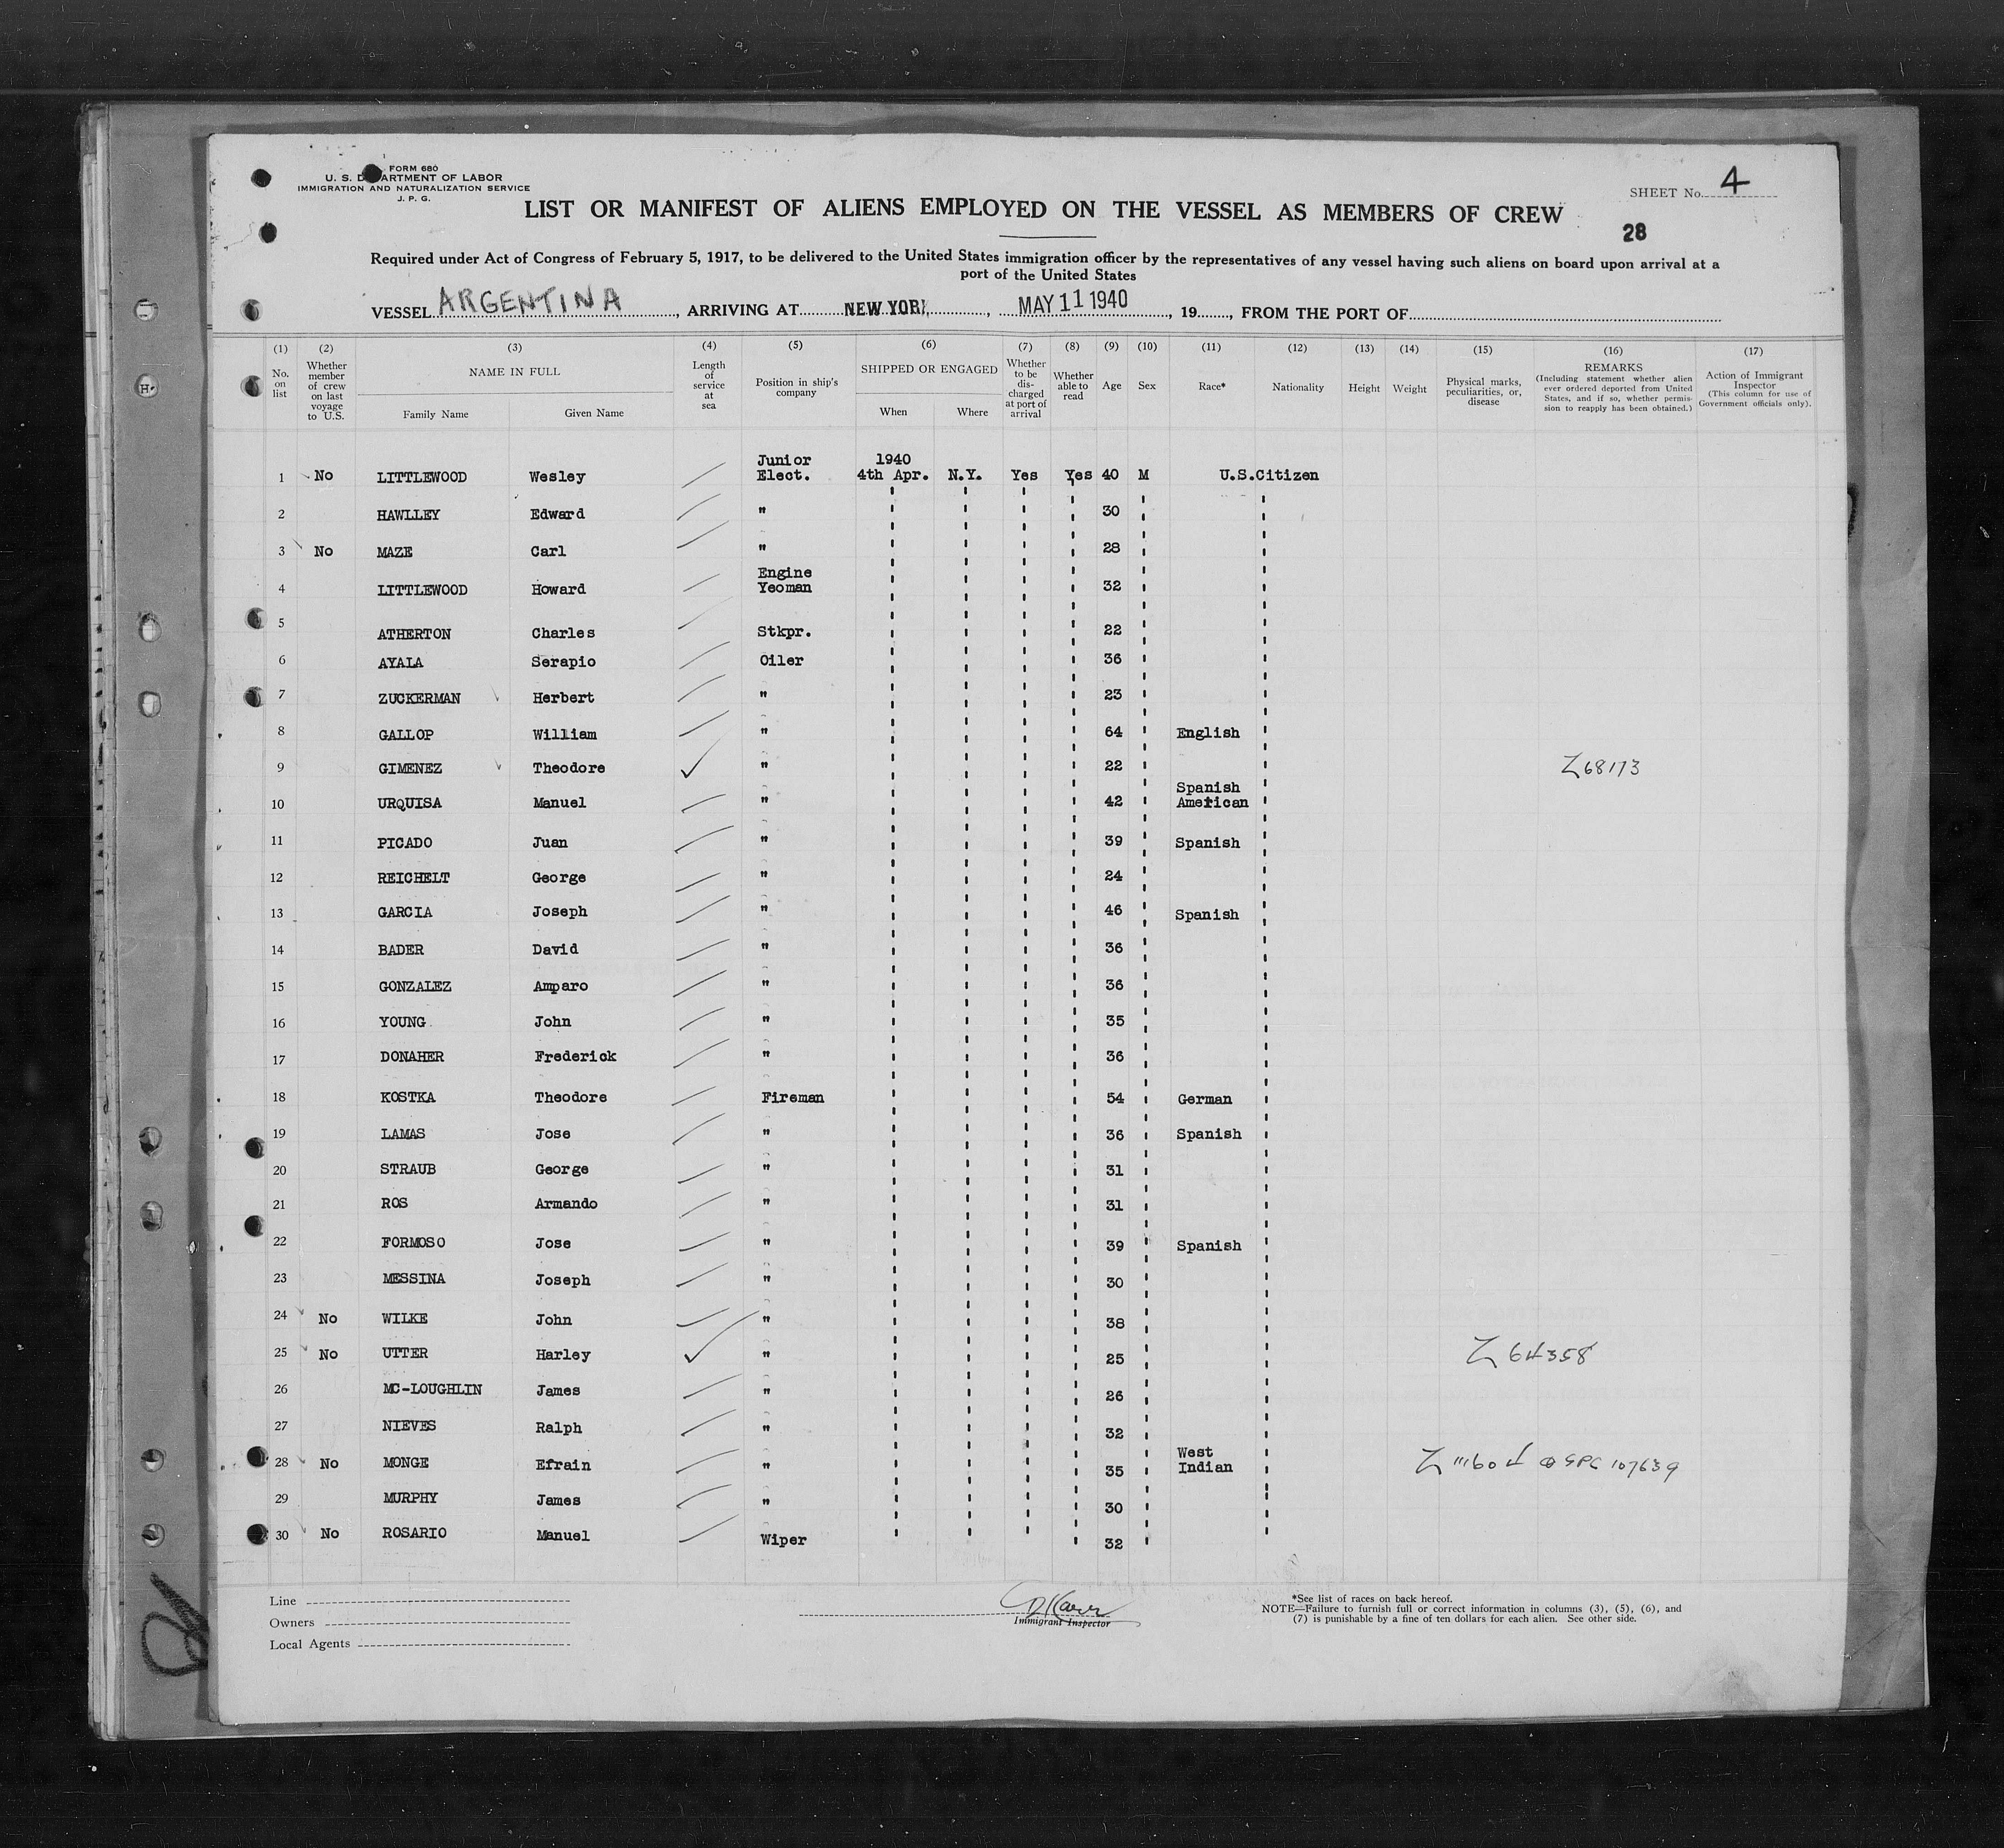 FORM 680
U. S. DEPARTMENT OF LABOR
IMMIGRATION AND NATURALIZATION SERVICE
J. P. G.
SHEET No. 4
LIST OR MANIFEST OF ALIENS EMPLOYED ON THE VESSEL AS MEMBERS OF CREW
28
Required under Act of Congress of February 5, 1917, to be delivered to the United States immigration officer by the representatives of any vessel having such aliens on board upon arrival at a
port of the United States
VESSEL ARGENTINA, ARRIVING AT NEW YORK, MAY 11 1940, 19......, FROM THE PORT OF
(1) No. on list
(2) Whether member of crew on last voyage to U.S.
(3) NAME IN FULL Family Name Given Name
(4) Length of service at sea
(5) Position in ship's company
(6) SHIPPED OR ENGAGED When Where
(7) Whether to be discharged at port of arrival
(8) Whether able to read
(9) Age
(10) Sex
(11) Race*
(12) Nationality
(13) Height
(14) Weight
(15) Physical marks, peculiarities, or, disease
(16) REMARKS (Including statement whether alien ever ordered deported from United States, and if so, whether permission to reapply has been obtained.)
(17) Action of Immigrant Inspector (This column for use of Government officials only).
1 No LITTLEWOOD Wesley Junior Elect. 1940 4th Apr. N.Y. Yes Yes 40 M U.S.Citizen
2 HAWLLEY Edward " 30
3 No MAZE Carl " 28
4 LITTLEWOOD Howard Engine Yeoman 32
5 ATHERTON Charles Stkpr. 22
6 AYALA Serapio Oiler 36
7 ZUCKERMAN Herbert " 23
8 GALLOP William " 64 English
9 GIMENEZ Theodore " 22 Z68173
10 URQUISA Manuel " 42 Spanish American
11 PICADO Juan " 39 Spanish
12 REICHELT George " 24
13 GARCIA Joseph " 46 Spanish
14 BADER David " 36
15 GONZALEZ Amparo " 36
16 YOUNG John " 35
17 DONAHER Frederick " 36
18 KOSTKA Theodore Fireman 54 German
19 LAMAS Jose " 36 Spanish
20 STRAUB George " 31
21 ROS Armando " 31
22 FORMOSO Jose " 39 Spanish
23 MESSINA Joseph " 30
24 No WILKE John " 38
25 No UTTER Harley " 25 Z 64358
26 MC-LOUGHLIN James " 26
27 NIEVES Ralph " 32
28 No MONGE Efrain " 35 West Indian 107639
29 MURPHY James " 30
30 No ROSARIO Manuel Wiper 32
Line
Owners
Local Agents
Immigrant Inspector
*See list of races on back hereof.
NOTE—Failure to furnish full or correct information in columns (3), (5), (6), and
(7) is punishable by a fine of ten dollars for each alien. See other side.